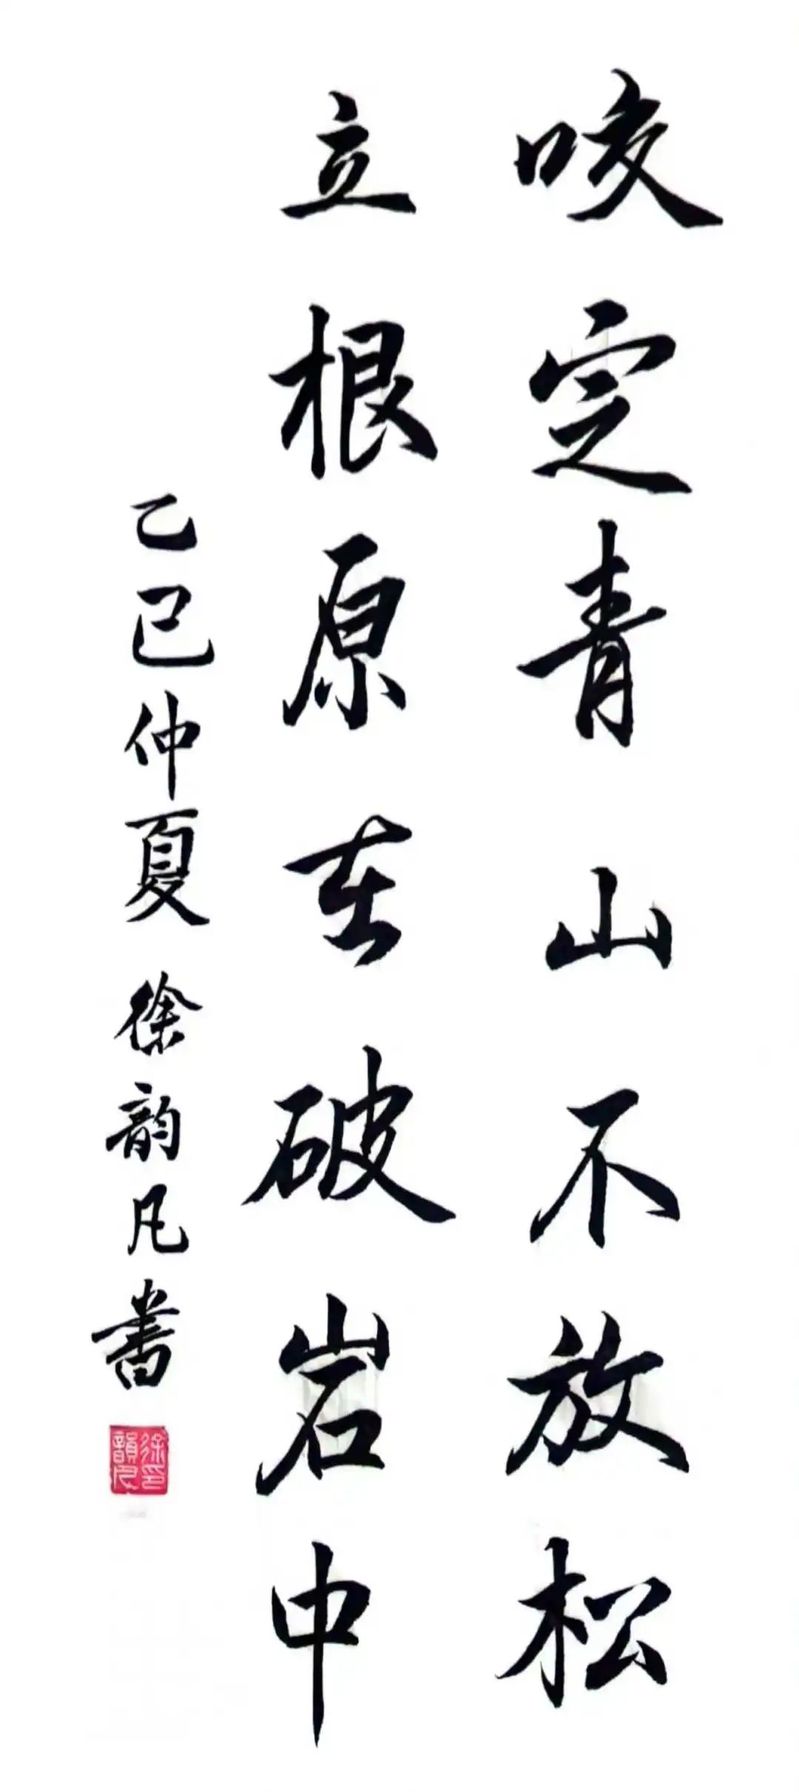 咬定青山不放松
立根原在破岩中
乙巳仲夏徐韵凡书
徐韻凡印